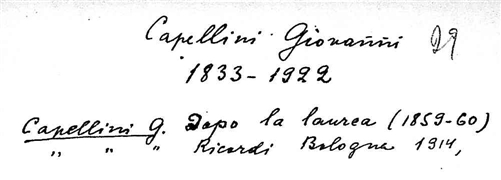 Capellini Giovanni 29
1833-1922
Capellini G. Dopo la laurea (1859-60)
" " " Ricordi Bologna 1914,